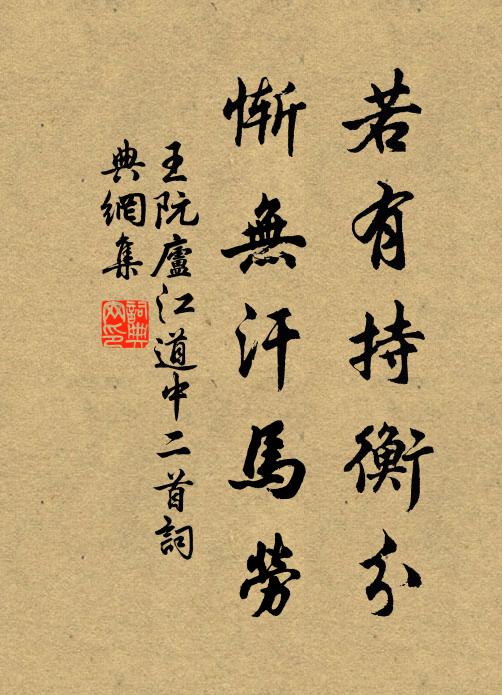 若有持衡分
慚無汗馬勞
王阮廬江道中二首詞
典網集
詞典
网印